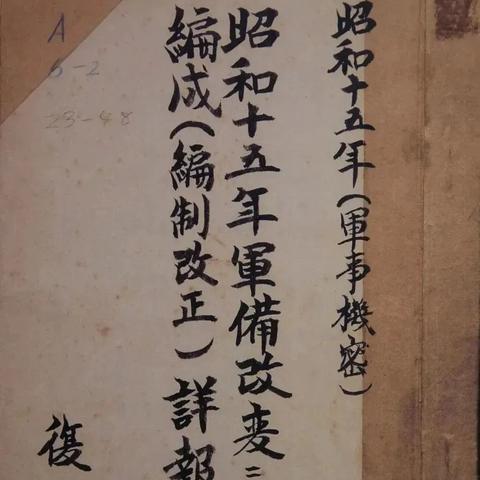 昭和十五年(軍事機密)
昭和十五年軍備改変ニ
編成(編制改正)詳報
復
A
6-2
23-48